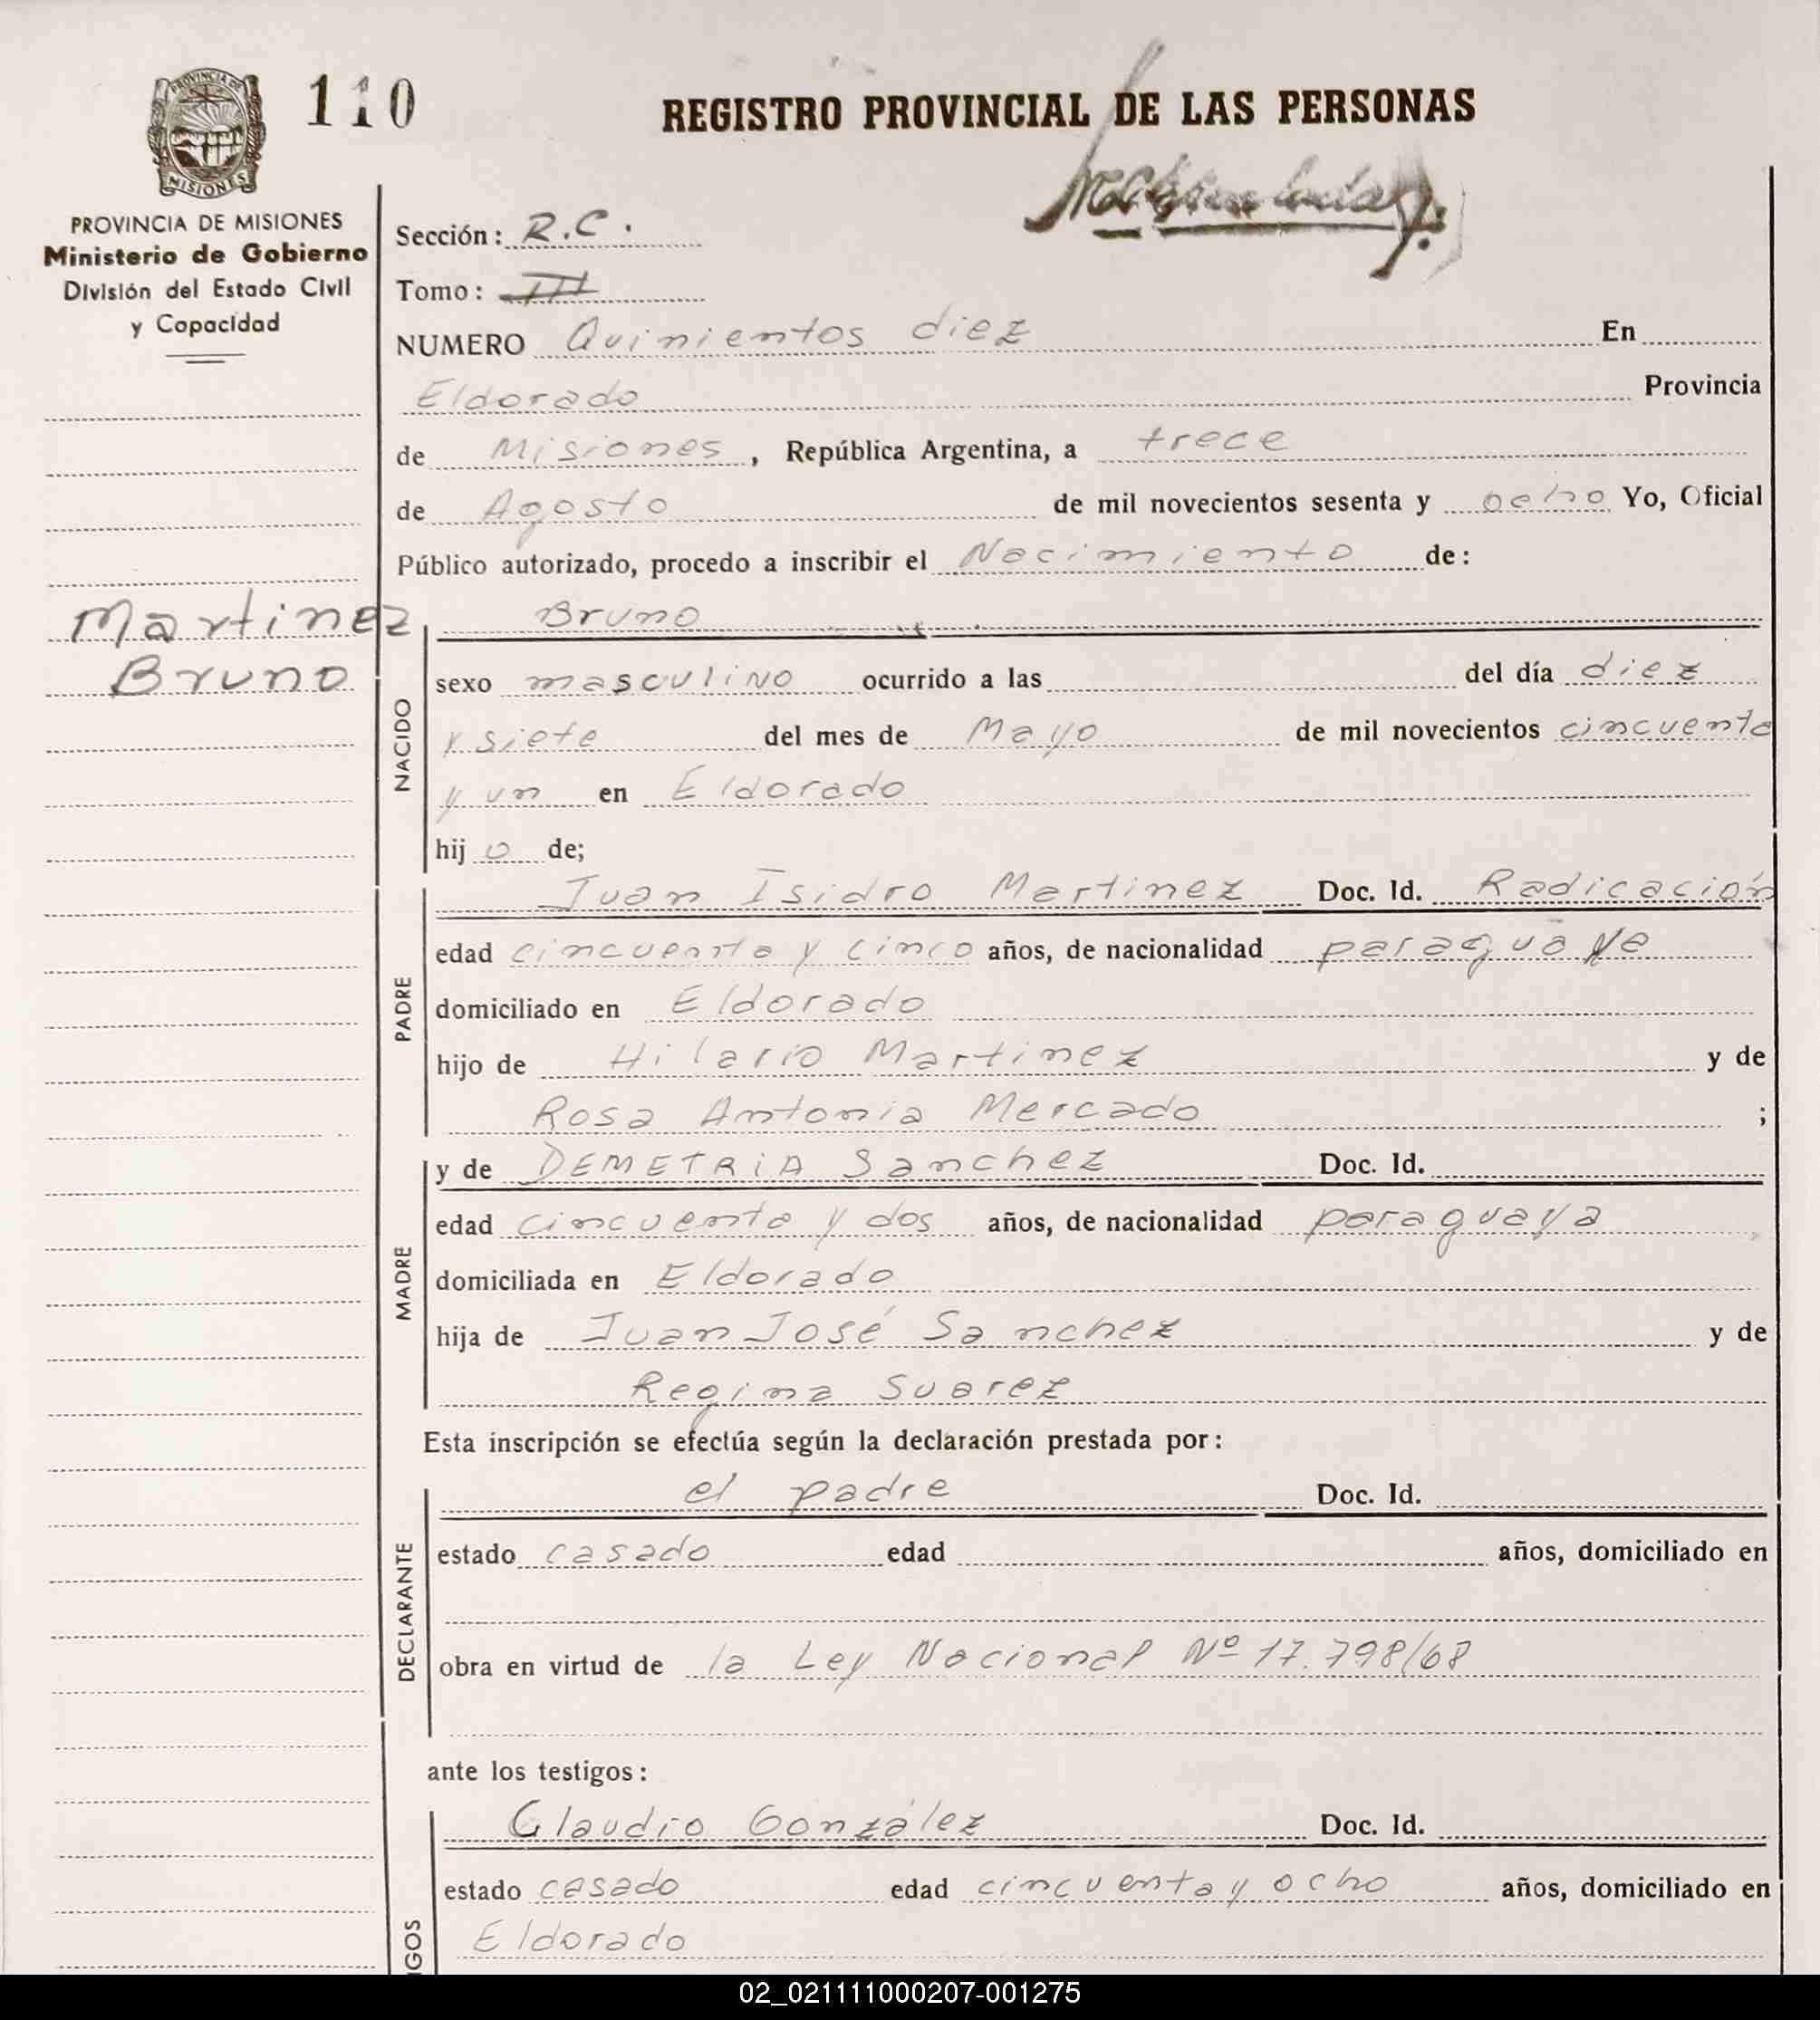 110
REGISTRO PROVINCIAL DE LAS PERSONAS
MISIONES
PROVINCIA DE MISIONES
Ministerio de Gobierno
División del Estado Civil
y Capacidad
Martinez
Bruno
Sección: R.C.
Tomo: III
NUMERO Quinientos diez En
Eldorado Provincia
de Misiones, República Argentina, a trece
de Agosto de mil novecientos sesenta y ocho Yo, Oficial
Público autorizado, procedo a inscribir el Nacimiento de:
Bruno
NACIDO
sexo masculino ocurrido a las del día diez
y siete del mes de Mayo de mil novecientos cincuenta
y un en Eldorado
hijo de;
PADRE
Juan Isidro Martinez Doc. Id. Radicación
edad cincuenta y cinco años, de nacionalidad paraguaya
domiciliado en Eldorado
hijo de Hilario Martinez y de
Rosa Antonia Mercado ;
MADRE
y de DEMETRiA Sanchez Doc. Id.
edad cincuenta y dos años, de nacionalidad paraguaya
domiciliada en Eldorado
hija de Juan José Sanchez y de
Regina Suarez
Esta inscripción se efectúa según la declaración prestada por:
DECLARANTE
el padre Doc. Id.
estado casado edad años, domiciliado en
obra en virtud de la Ley Nacional Nº 17.798/68
ante los testigos:
Claudio González Doc. Id.
estado casado edad cincuenta y ocho años, domiciliado en
Eldorado
IGOS
02_021111000207-001275